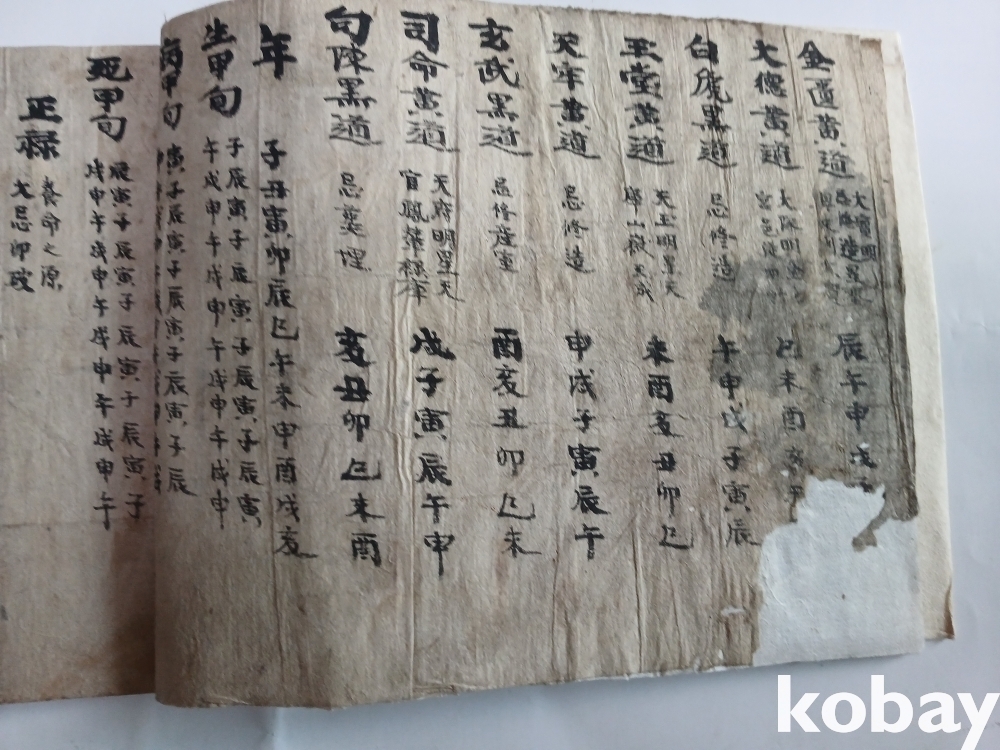 金匱黃道 大寶明 辰午申戌子
大德黃道 巳未酉亥
白虎黑道 忌修造 午申戌子寅辰
玉堂黃道 天玉明星天 未酉亥丑卯巳
天牢黃道 忌修造 申戌子寅辰午
玄武黑道 忌修産室 酉亥丑卯巳未
司命黃道 天府明星天 官職葉祿 戌子寅辰午申
句陳黑道 忌葬埋 亥丑卯巳未酉
年 子丑寅卯辰巳午未申酉戌亥
生甲旬 子辰寅子辰寅子辰寅子辰寅 午戌申午戌申午戌申午戌申
病甲旬 寅子辰寅子辰寅子辰寅子辰
死甲旬 辰寅子辰寅子辰寅子辰寅子 戌申午戌申午戌申午戌申午
正祿 養命之原 大忌卯破
kobay